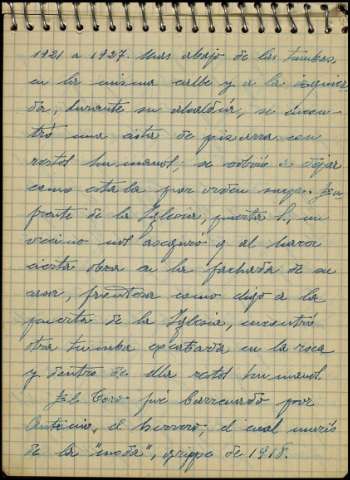 1921 a 1927. Mas abajo de las tumbas,
en la misma calle y a la izquier
da, durante su alcaldia, se encon-
tró una cista de pizarra con
restos humanos; se volvió a dejar
como estaba por orden suya. En-
frente de la Iglesia, puerta 1, un
vecino nos aseguró q al hacer
cierta obra en la fachada de su
casa, frontera como digo a la
puerta de la Iglesia, encontró
otra tumba excabada en la roca
y dentro de ella restos humanos
El Coro fue barrenado por
Antonio, el herrero, el cual murió
de la "moda", grippe de 1918.